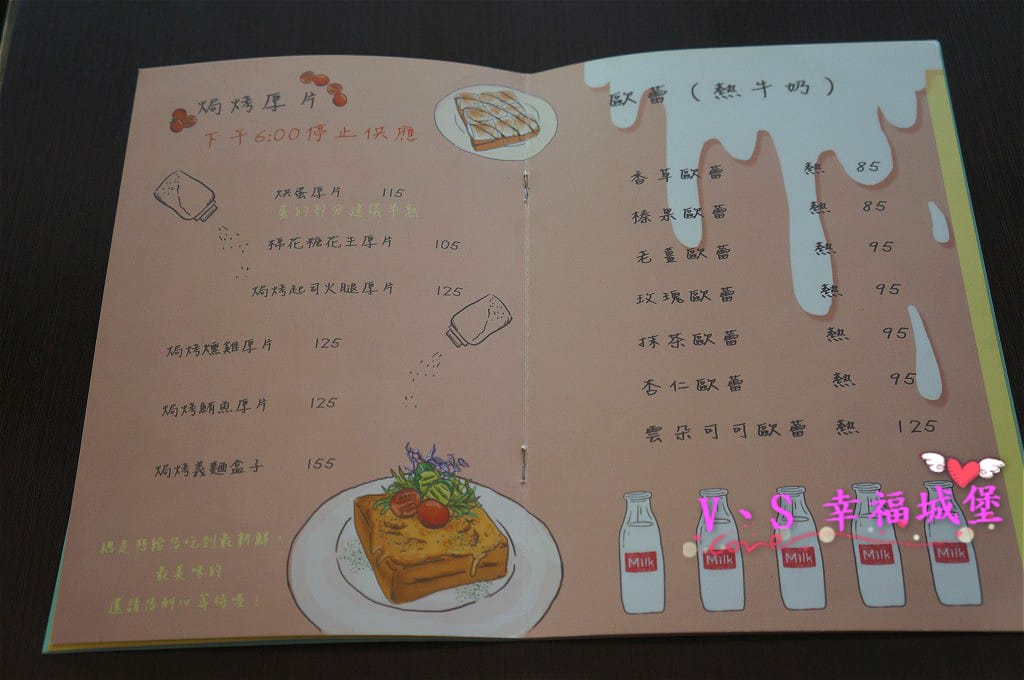 焗烤厚片
下午6:00停止供應
烘蛋厚片 115
蛋的部分建議半熟
棉花糖花生厚片 105
焗烤起司火腿厚片 125
焗烤燻雞厚片 125
焗烤鮪魚厚片 125
焗烤義麵盒子 155
總是想給您吃到最新鮮，
最美味的
還請您耐心等待喔！
歐蕾（熱牛奶）
香草歐蕾 熱 85
榛果歐蕾 熱 85
老薑歐蕾 熱 95
玫瑰歐蕾 熱 95
抹茶歐蕾 熱 95
杏仁歐蕾 熱 95
雲朵可可歐蕾 熱 125
V、S 幸福城堡
Milk Milk Milk Milk Milk